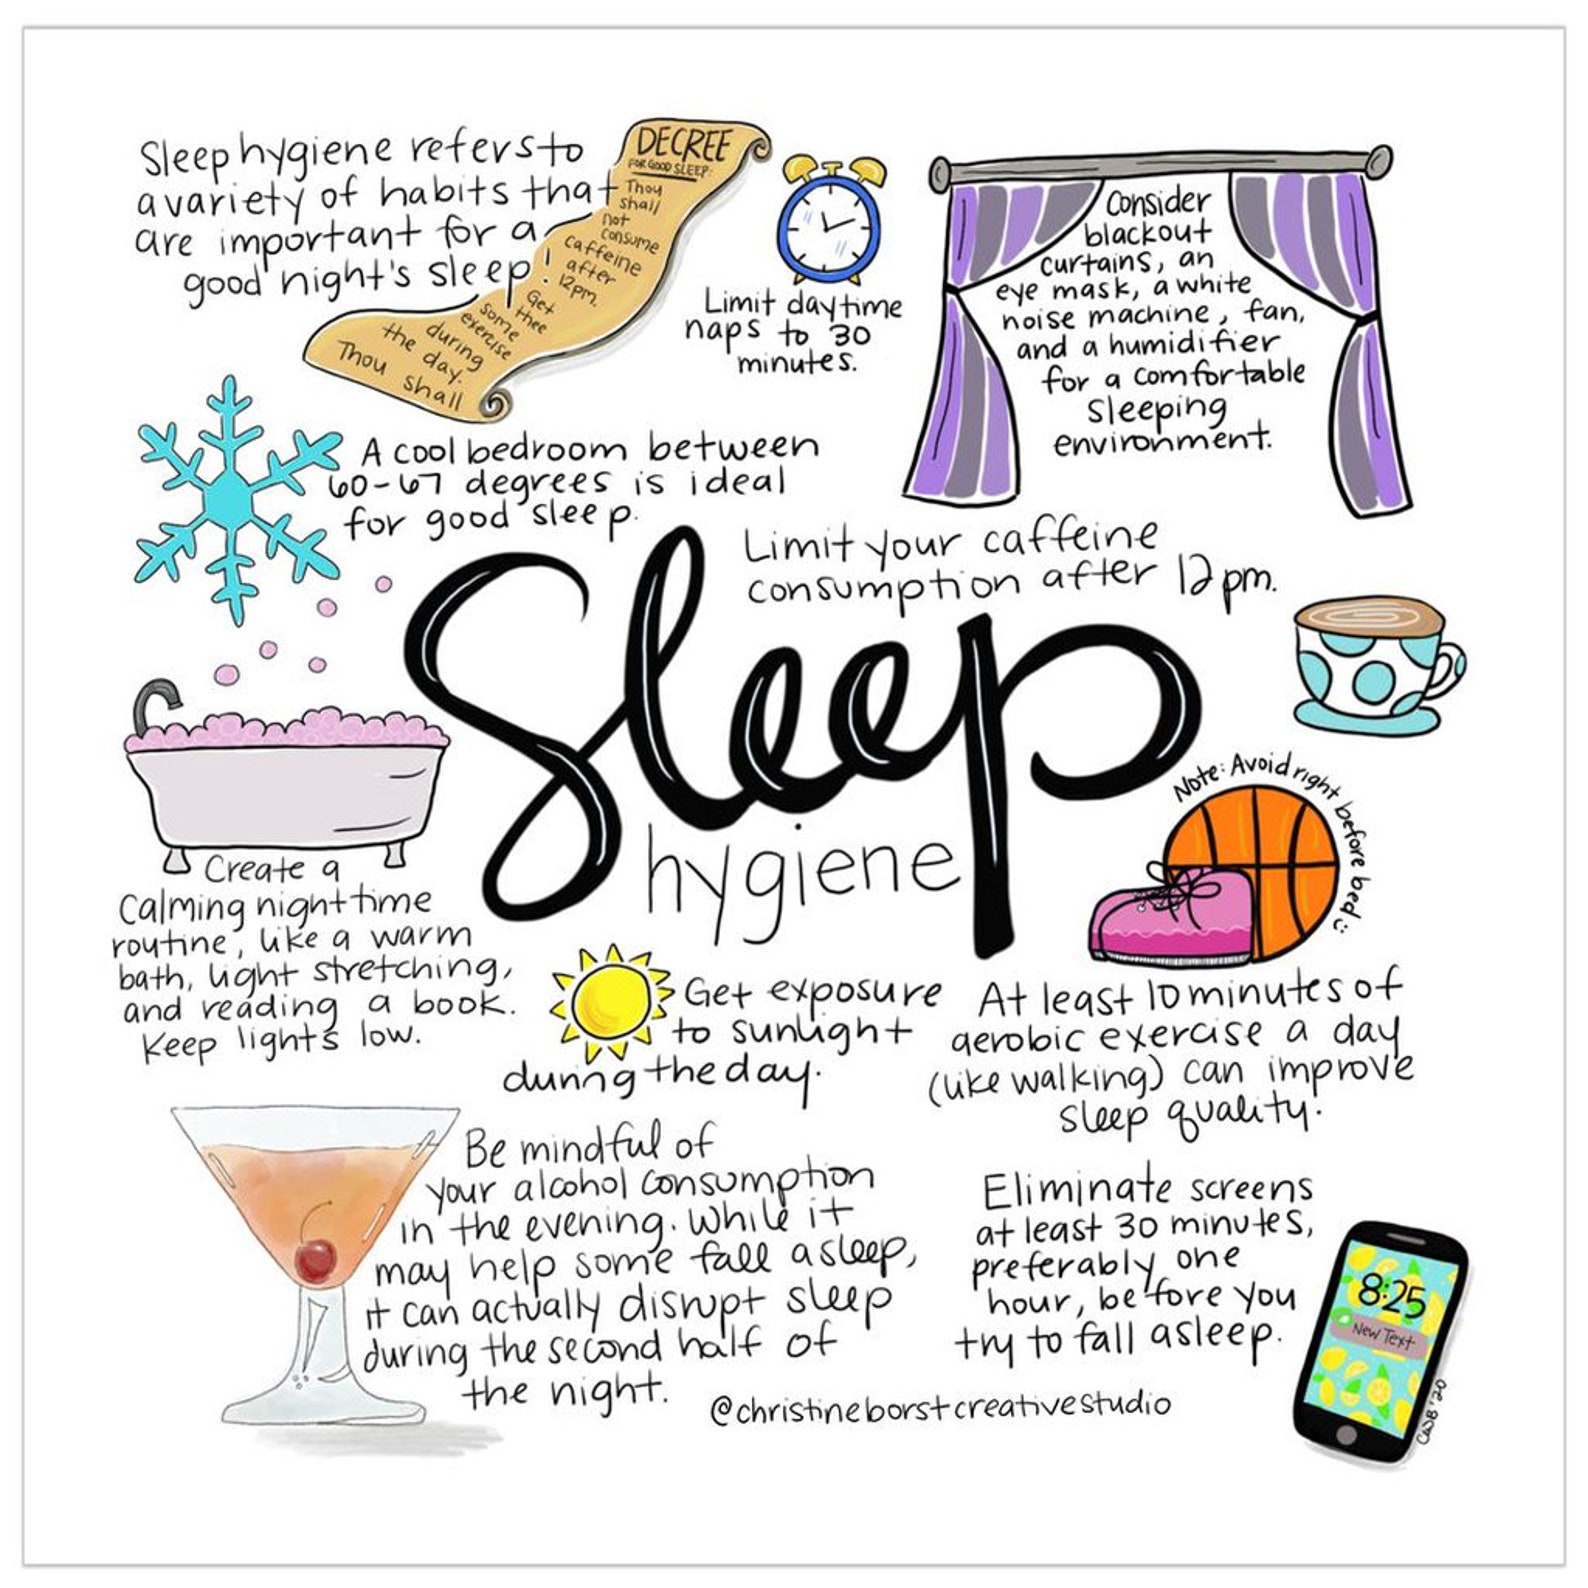 Sleep hygiene refers to
a variety of habits that
are important for a
good night's sleep!
DECREE
FOR GOOD SLEEP:
Thou
shall
not
consume
caffeine
after
12pm.
Get
thee
some
exercise
during
the day.
Thou shall
Limit daytime
naps to 30
minutes.
Consider
blackout
curtains, an
eye mask, a white
noise machine, fan,
and a humidifier
for a comfortable
sleeping
environment.
A cool bedroom between
60-67 degrees is ideal
for good sleep.
Limit your caffeine
consumption after 12pm.
Sleep
hygiene
Note: Avoid right before bed :)
Create a
calming nighttime
routine, like a warm
bath, light stretching,
and reading a book.
Keep lights low.
Get exposure
to sunlight
during the day.
At least 10 minutes of
aerobic exercise a day
(like walking) can improve
sleep quality.
Be mindful of
your alcohol consumption
in the evening. While it
may help some fall asleep,
it can actually disrupt sleep
during the second half of
the night.
Eliminate screens
at least 30 minutes,
preferably one
hour, before you
try to fall asleep.
8:25
New Text
@christineborstcreativestudio
CWB '20